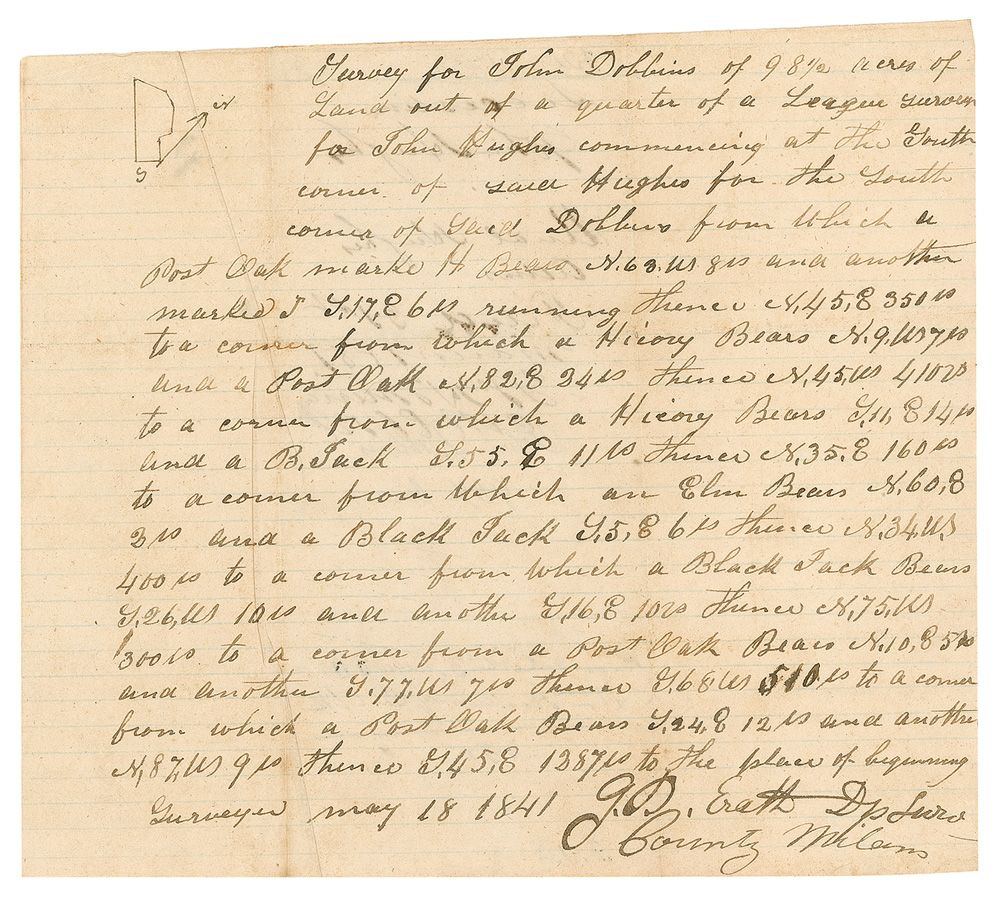 Survey for John Dobbins of 98½ acres of
Land out of a quarter of a League survey
for John Hughes commencing at the South
corner of said Hughes for the South
corner of said Dobbins from which a
N
S
Post Oak marke H Bears N.63.W 8vs and another
marked J S.17,E 6vs running thence N.45,E 350vs
to a corner from which a Hicory Bears N.9,W 7vs
and a Post Oak N.82,E 24vs thence N.45,W 410vs
to a corner from which a Hicory Bears S.11,E 14vs
and a B.Jack S.55.E 11vs thence N.35.E 160vs
to a corner from Which an Elm Bears N.60,E
3vs and a Black Jack S.5,E 6vs thence N.34W,
400vs to a corner from which a Black Jack Bears
S.26,W 10vs and anothe S.16,E 10vs thence N.75,W
300vs to a corner from a Post Oak Bears N.10,E 5vs
and another S.77,W 7vs thence S.68W 510vs to a corner
from which a Post Oak Bears S.24,E 12vs and another
N.87,W 9vs thence S.45,E 1387vs to the place of beginning
Surveyed may 18 1841 G.B. Erath Dp Surv
County Milam